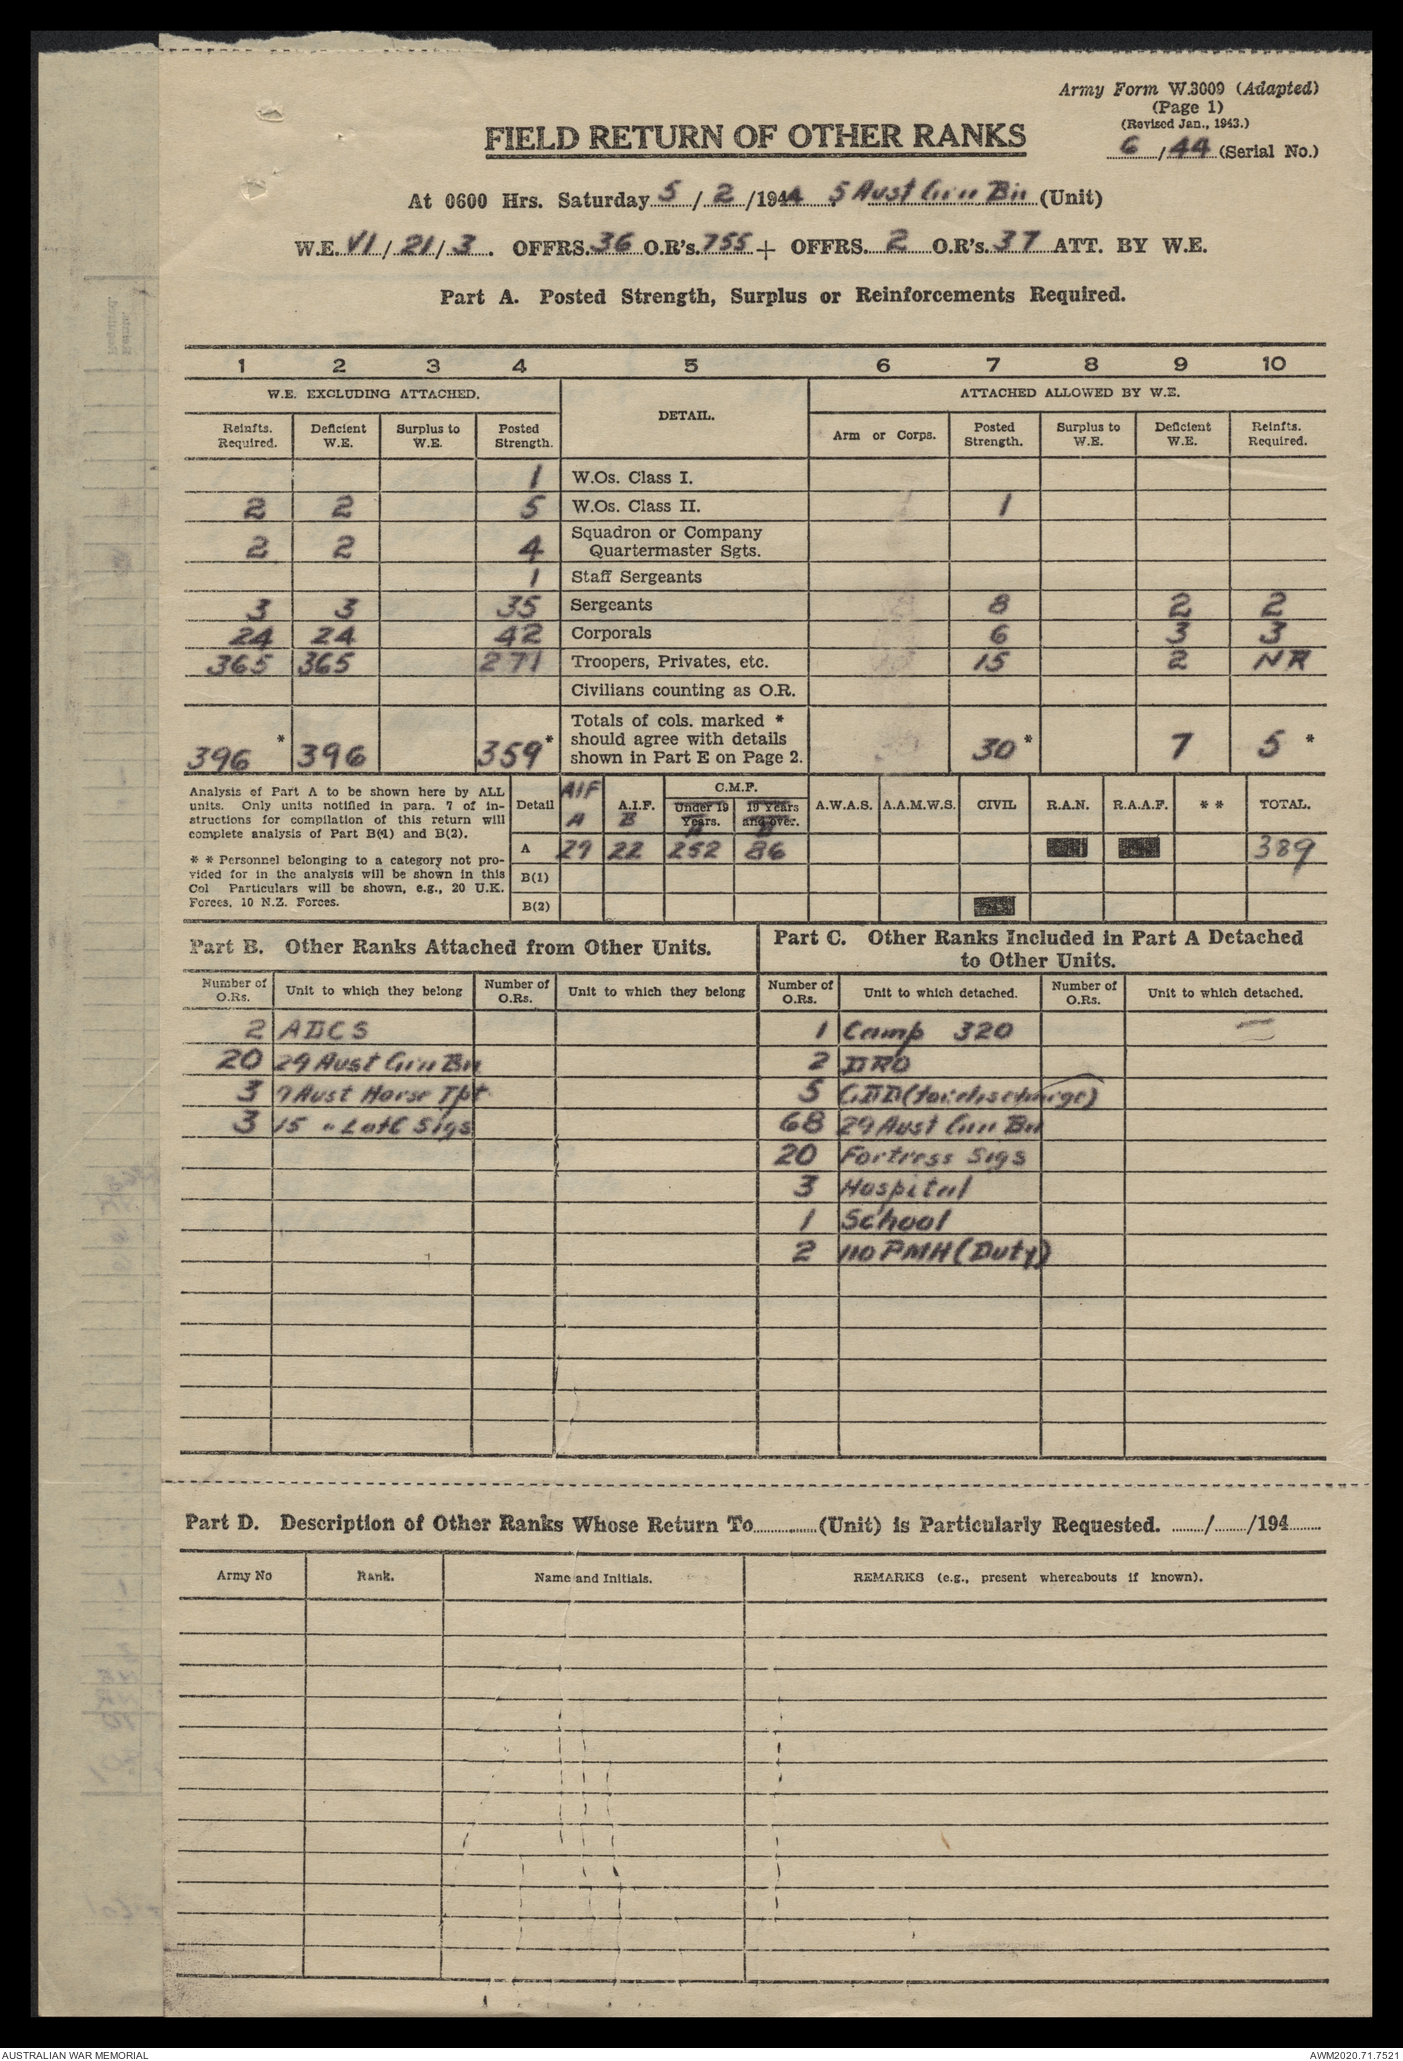 Army Form W.3009 (Adapted)
(Page 1)
(Revised Jan., 1943.)
6/44 (Serial No.)
FIELD RETURN OF OTHER RANKS
At 0600 Hrs. Saturday 5/2/1944 5 Aust Grn Bn (Unit)
W.E. VI/21/3. OFFRS. 36 O.R's. 755 + OFFRS. 2 O.R's. 37 ATT. BY W.E.
Part A. Posted Strength, Surplus or Reinforcements Required.
1 2 3 4 5 6 7 8 9 10
W.E. EXCLUDING ATTACHED. DETAIL. ATTACHED ALLOWED BY W.E.
Reinfts. Required. Deficient W.E. Surplus to W.E. Posted Strength. Arm or Corps. Posted Strength. Surplus to W.E. Deficient W.E. Reinfts. Required.
1 W.Os. Class I.
2 2 5 W.Os. Class II. 1
2 2 4 Squadron or Company Quartermaster Sgts.
1 Staff Sergeants
3 3 35 Sergeants 8 2 2
24 24 42 Corporals 6 3 3
365 365 271 Troopers, Privates, etc. 15 2 NR
Civilians counting as O.R.
396 * 396 359 * Totals of cols. marked * should agree with details shown in Part E on Page 2. 30 * 7 5 *
Analysis of Part A to be shown here by ALL
units. Only units notified in para. 7 of in-
structions for compilation of this return will
complete analysis of Part B(1) and B(2).
* * Personnel belonging to a category not pro-
vided for in the analysis will be shown in this
Col Particulars will be shown, e.g., 20 U.K.
Forces, 10 N.Z. Forces.
Detail AIF A A.I.F. B C.M.F. Under 19 Years. A 19 Years and over. B A.W.A.S. A.A.M.W.S. CIVIL R.A.N. R.A.A.F. * * TOTAL.
A 29 22 252 86 389
B(1)
B(2)
Part B. Other Ranks Attached from Other Units.
Number of O.Rs. Unit to which they belong Number of O.Rs. Unit to which they belong
2 ADCS
20 29 Aust Grn Bn
3 7 Aust Horse Tpt
3 15 " L of C Sigs
Part C. Other Ranks Included in Part A Detached
to Other Units.
Number of O.Rs. Unit to which detached. Number of O.Rs. Unit to which detached.
1 Camp 320
2 DRO
5 GDD (for discharge)
68 29 Aust Grn Bn
20 Fortress Sigs
3 Hospital
1 School
2 110 PMH (Duty)
Part D. Description of Other Ranks Whose Return To............(Unit) is Particularly Requested. ......./......./194.......
Army No Rank. Name and Initials. REMARKS (e.g., present whereabouts if known).
AUSTRALIAN WAR MEMORIAL
AWM2020.71.7521